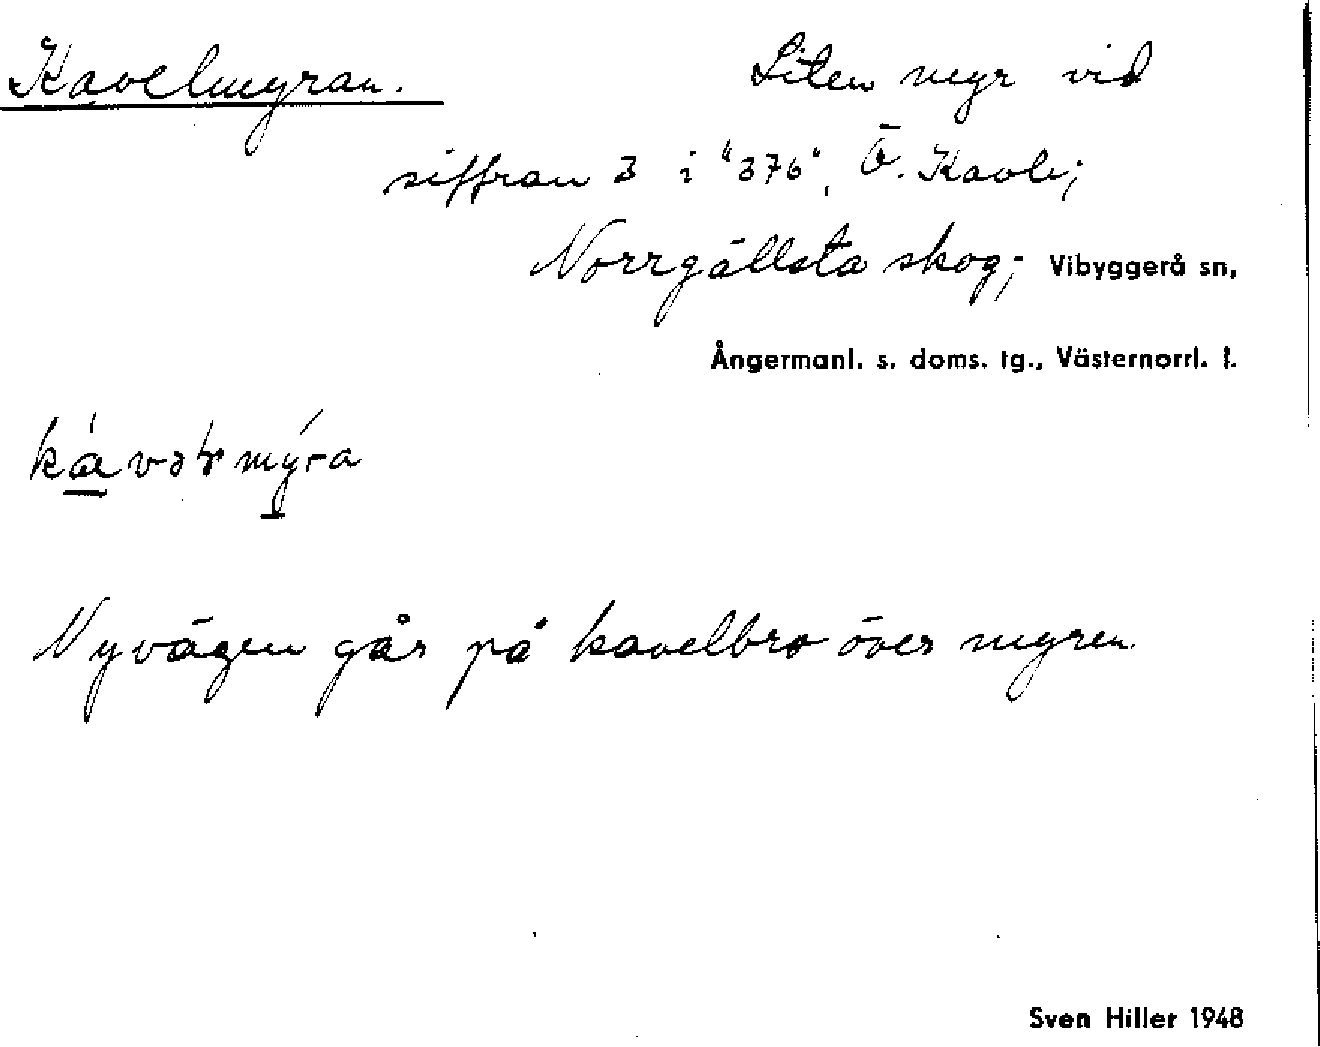 Kavelmyran. Liten myr vid
siffran 3 i "376", Ö. Kavle;
Norrgällsta skog; Vibyggerå sn,
Ångermanl. s. doms. tg., Västernorrl. l.
Nyvägen går på kavelbro över myren.
Sven Hiller 1948